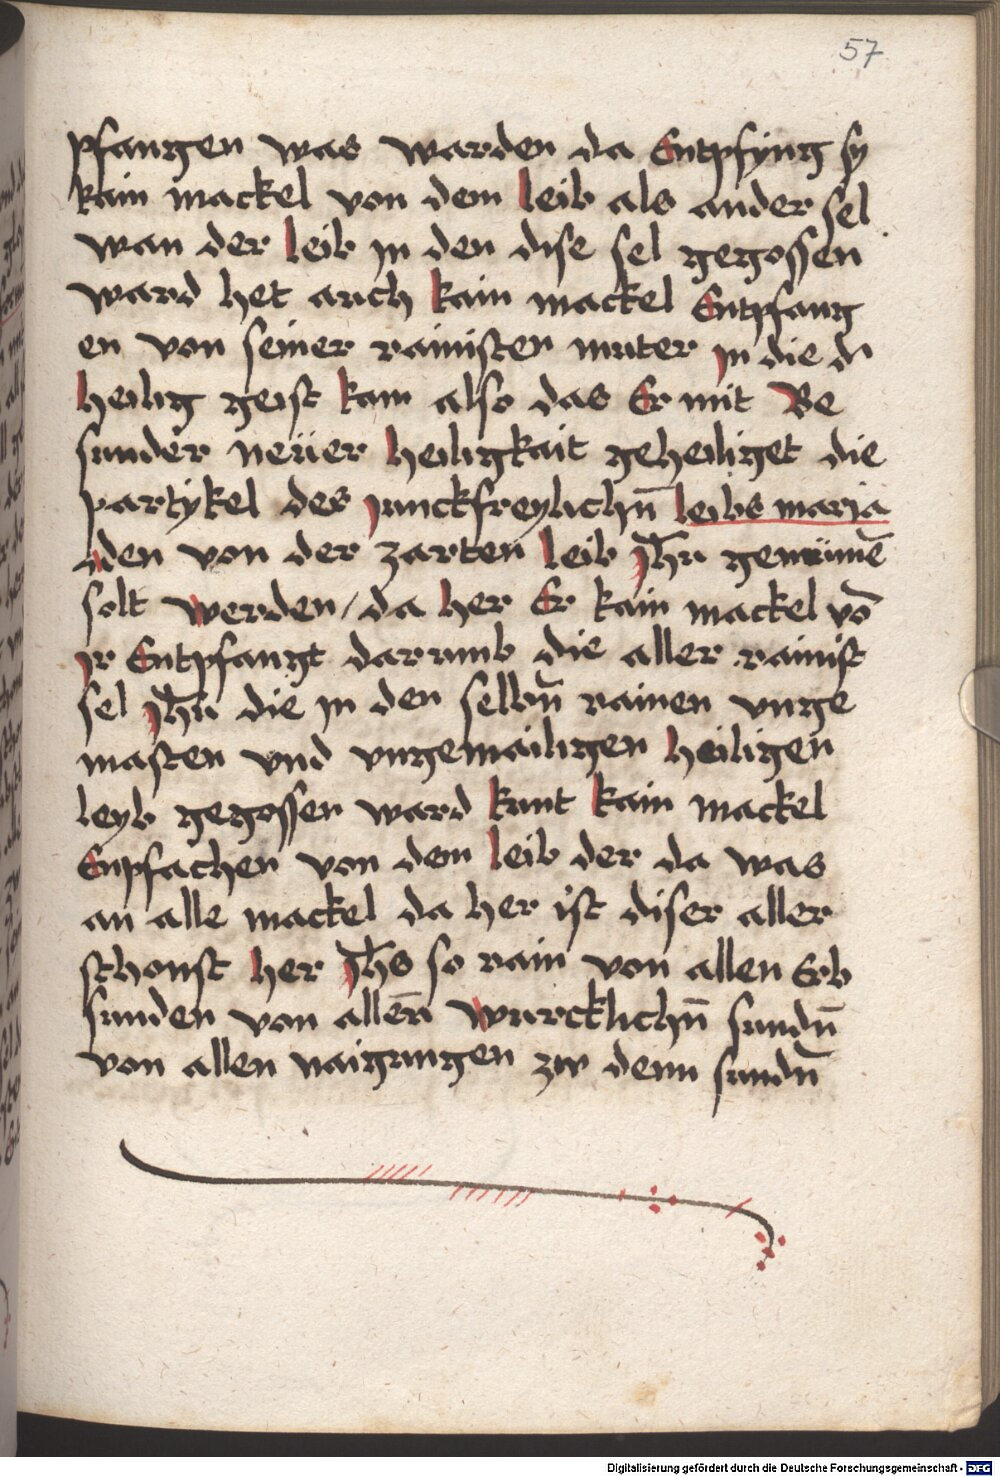 57
pfangen was warden da Entpfyng sy
kain mackel von dem leib als ander sel
wan der leib jn den dise sel gegossen
ward het auch kain mackel Entpfang
en von seiner rainisten muter jn die dˀ
heilig geist kam also das Er mit Be
sunder neuer heiligkait geheiliget die
partykel des junckfreylichn̄ leibs maria
den von der zarten leib jh̄u genumē
solt werden / da her Er kain mackel vō
jr Entpfangt darumb die aller rainist
sel jh̄u die jn den selbn̄ rainen vnge
masten vnd vngemailigen heiligen
leyb gegossen ward kunt kain mackel
Enpfachen von dem leib der da was
an alle mackel da her ist diser aller
schonst her jh̄s so rain von allen Erb
sunden von allen̄ wurcklichn̄ sundn̄
von allen naigungen zw denn sundn̄
Digitalisierung gefördert durch die Deutsche Forschungsgemeinschaft - DFG